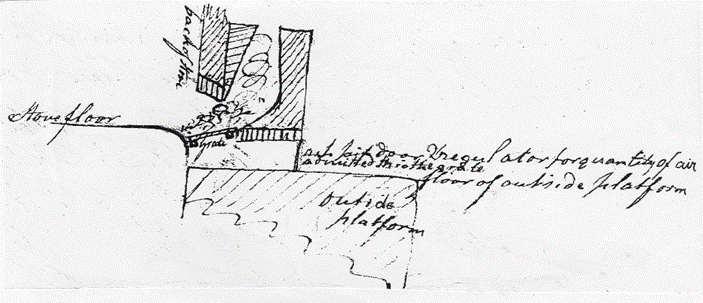 back of stove
Stove floor
grate
ash pit door & regulator for quantity of air
admitted thro the grate
floor of outside platform
Outside
platform